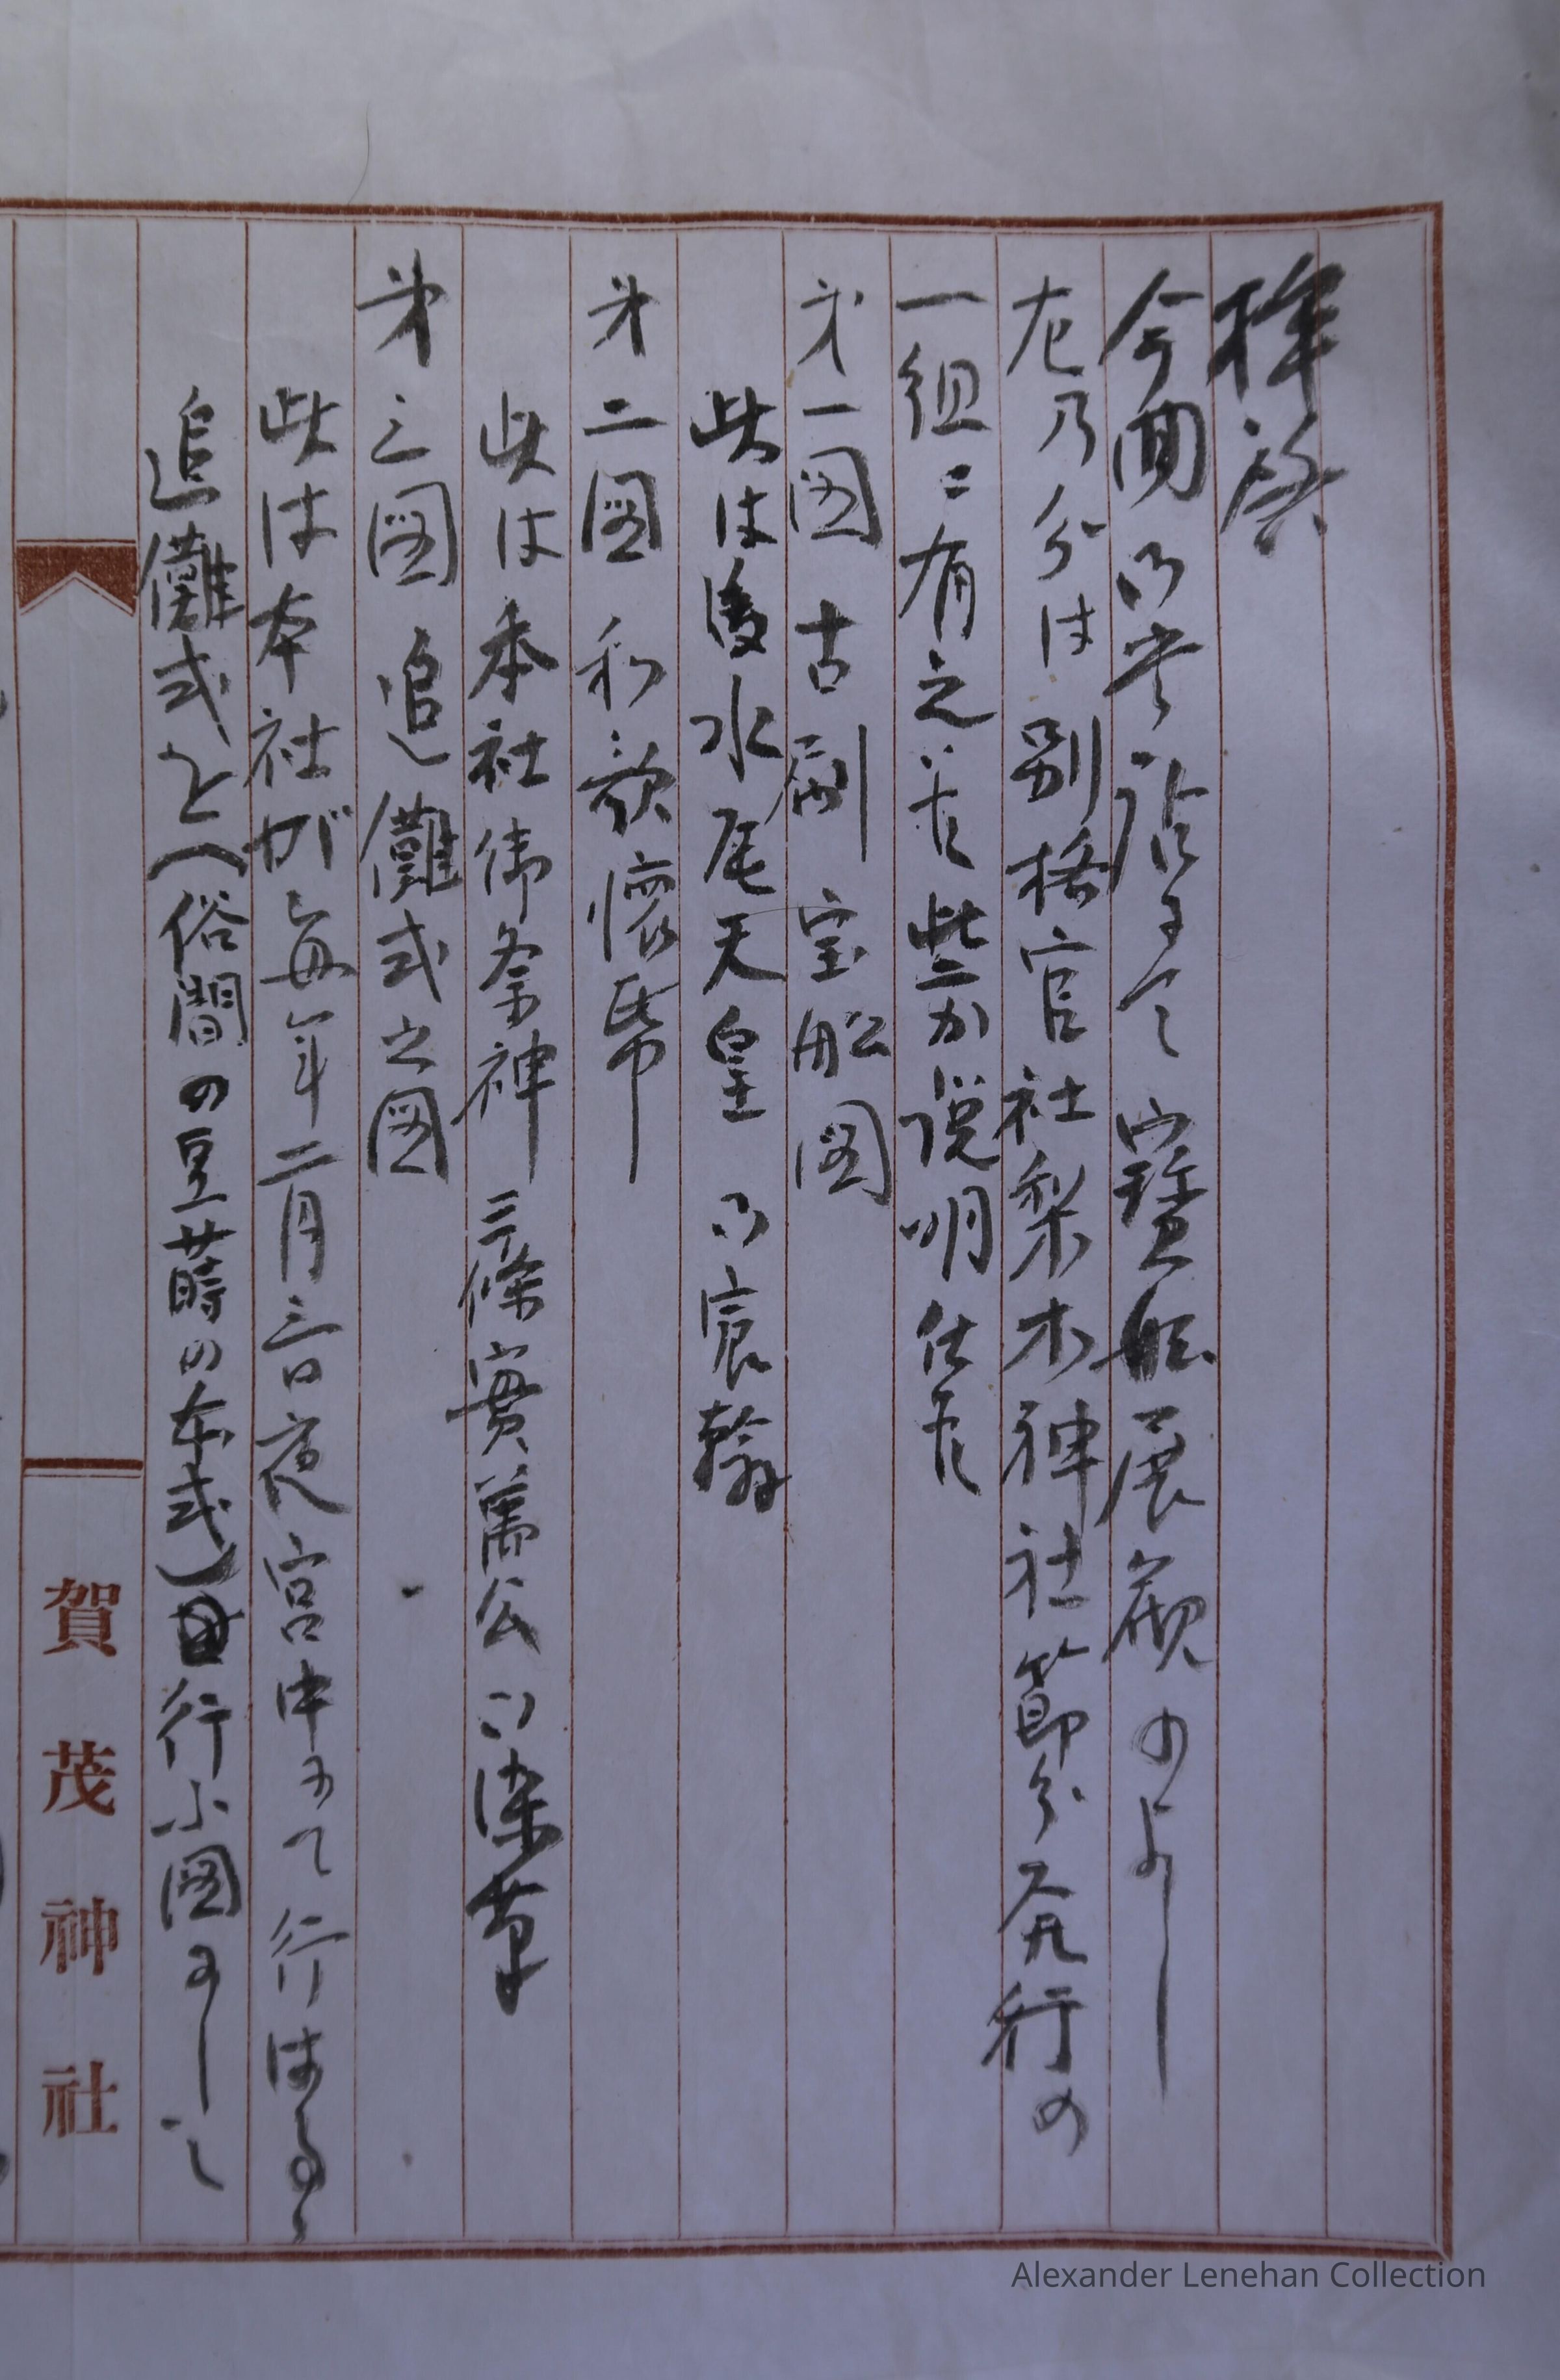 拝啓
今回御当社にて寶船展観のよし
左乃分は別格官社梨木神社節分発行の
一組ニ有之候 些か説明仕候
第一図 古刷 宝船図
此は後水尾天皇 御宸翰
第二図 和歌懐帋
此は本社御祭神 三條實萬公御染草
第三図 追儺式之図
此は本社が毎年二月三日夜宮中にて行はるゝ
追儺式を(俗間の豆蒔の本式)行ふ図にして
賀茂神社
Alexander Lenehan Collection